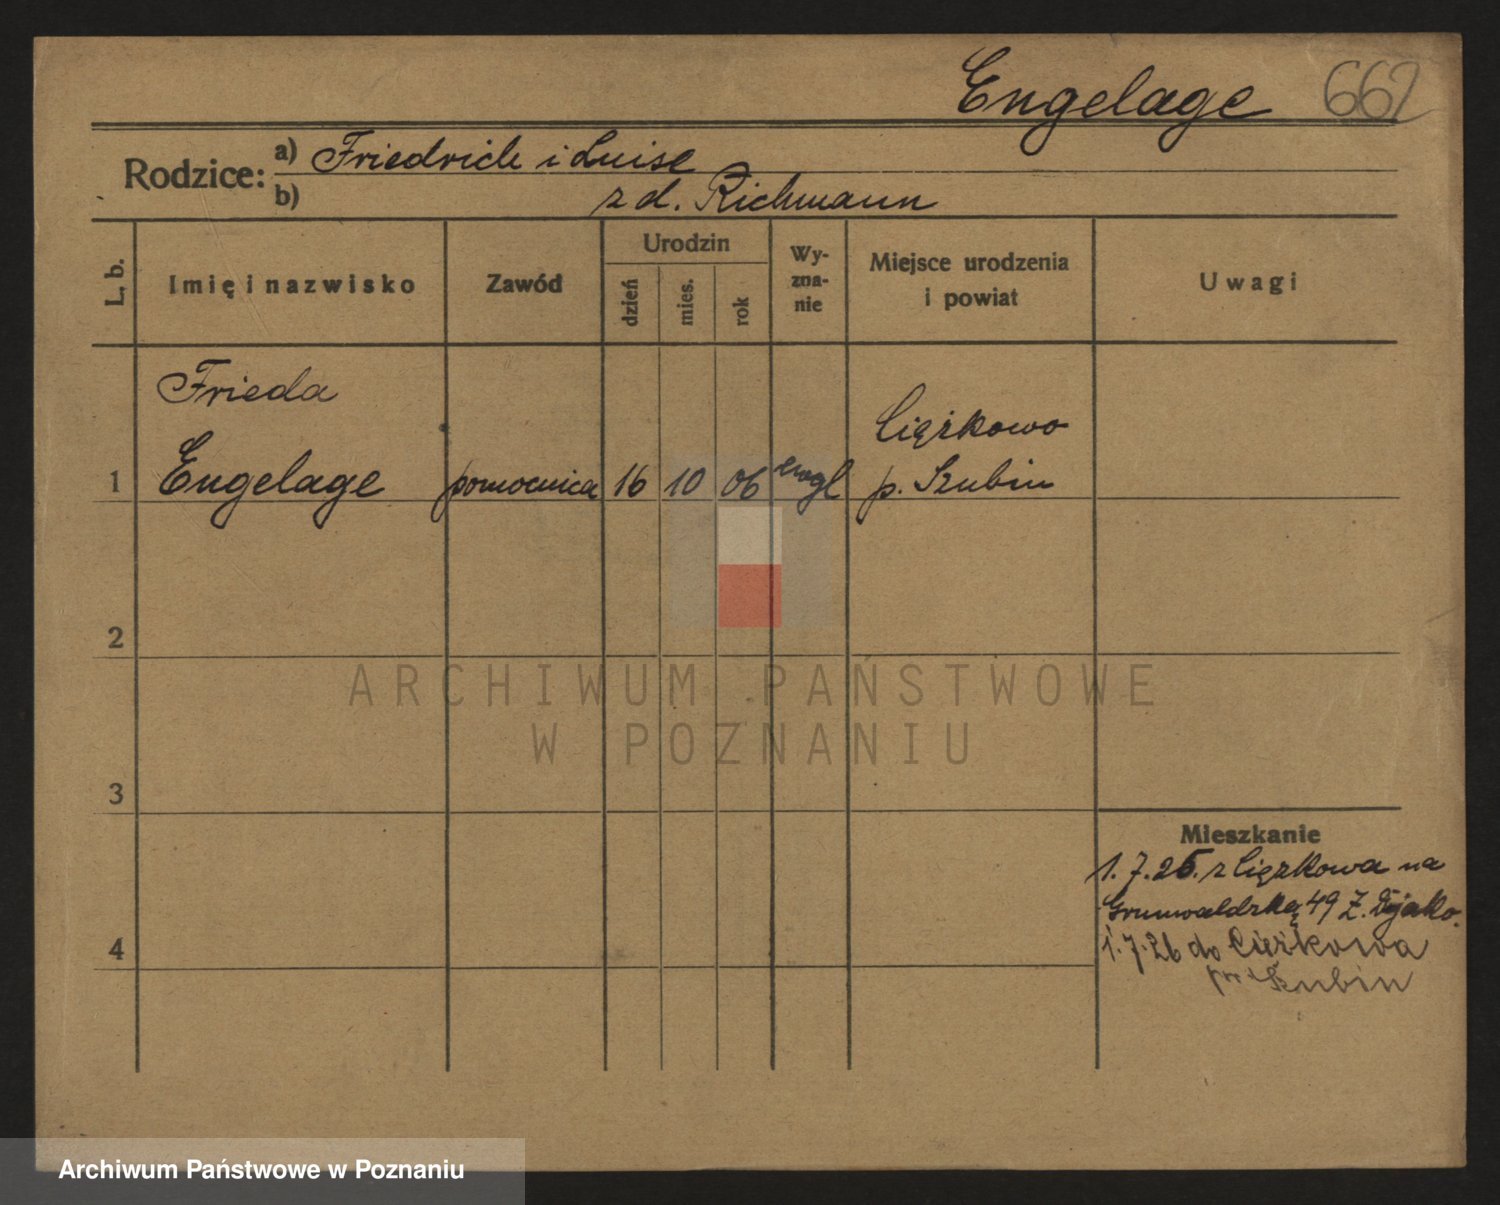 Engelage 662
Rodzice: a) Friedrich i Luise
b) z d. Richmann
L. b. Imię i nazwisko Zawód Urodzin dzień mies. rok Wy-zna-nie Miejsce urodzenia i powiat Uwagi
Frieda
1 Engelage pomocnica 16 10 06 ewgl Ciężkowo
p. Szubin
2
ARCHIWUM PAŃSTWOWE
W POZNANIU
3
Mieszkanie
1.7.25. z Ciężkowa na
Grunwaldzką 49 Z.
4
1.7.26 do Ciężkowa
pow Szubin
Archiwum Państwowe w Poznaniu